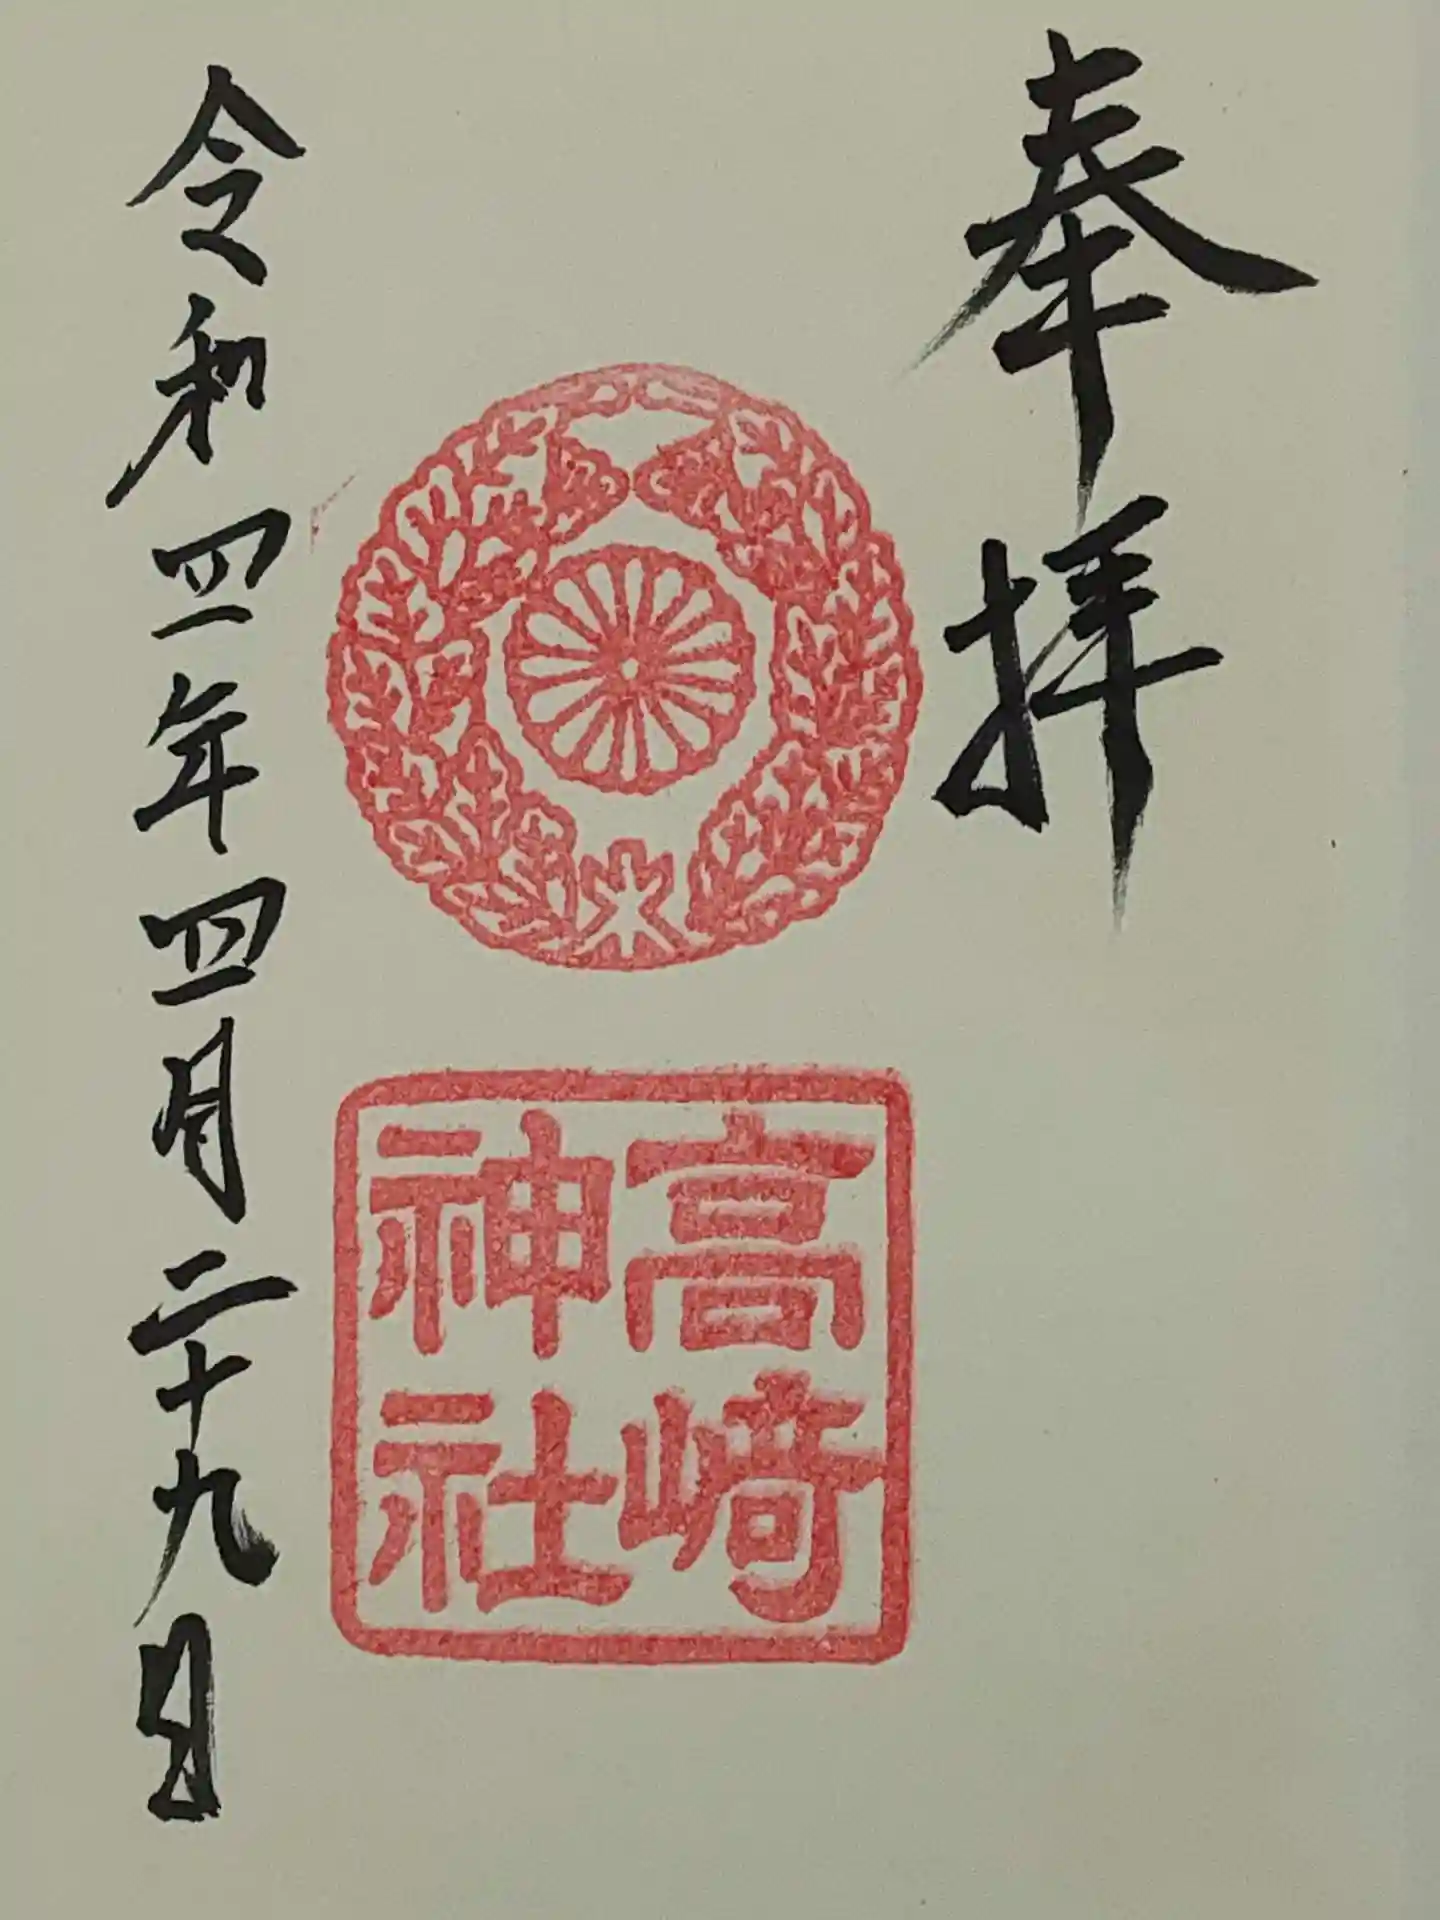 奉拝
高崎
神社
令和四年四月二十九日